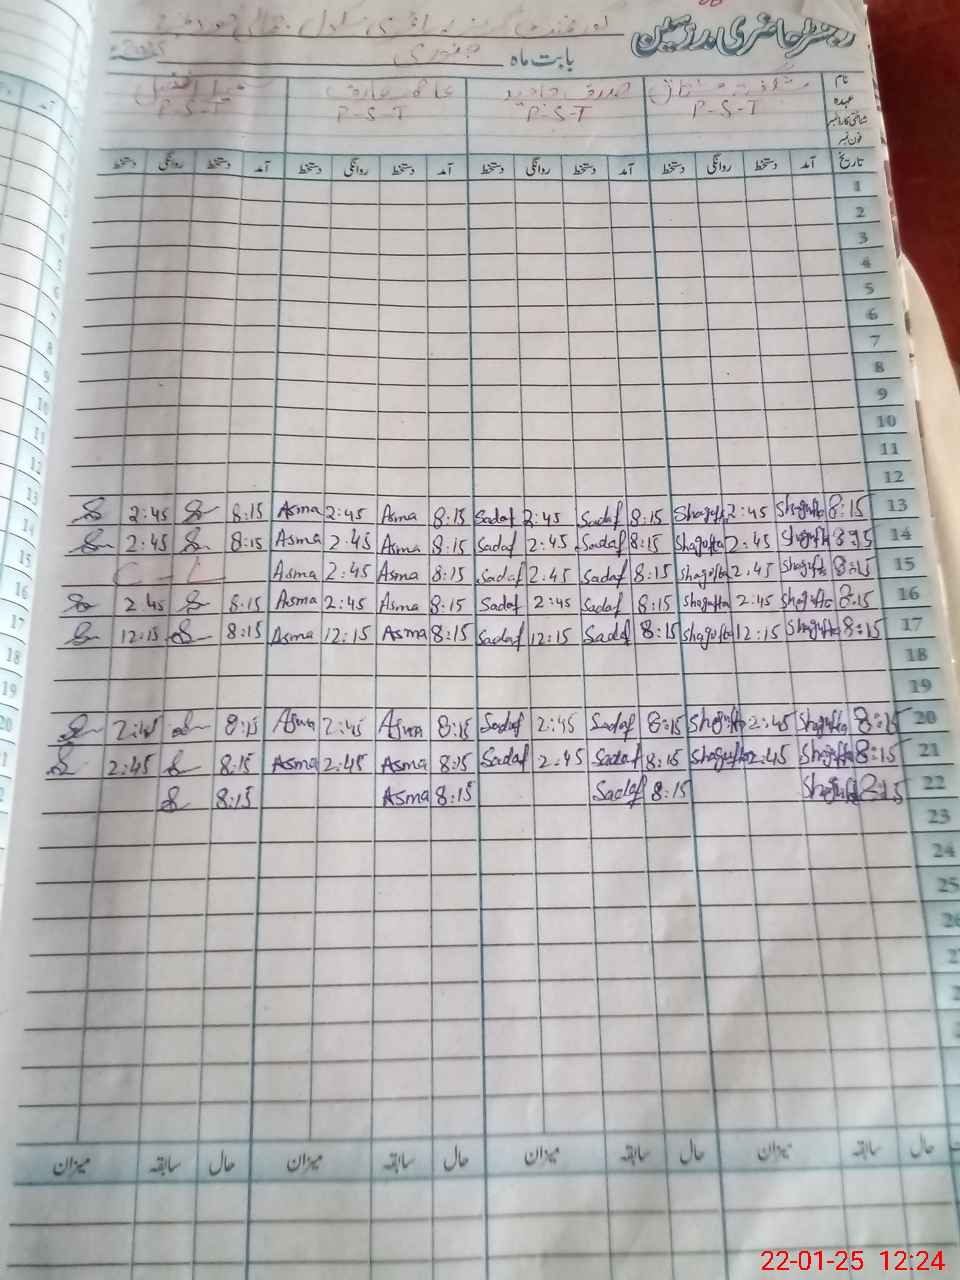 رجسٹر حاضری مدرسین
بابت ماہ جنوری 2025
نام
عہدہ P-S-T P-S-T P-S-T P-S-T
شناختی کارڈ نمبر
فون نمبر
تاریخ آمد دستخط روانگی دستخط آمد دستخط روانگی دستخط آمد دستخط روانگی دستخط آمد دستخط روانگی دستخط
1
2
3
4
5
6
7
8
9
10
11
12
2:45 8:15 Asma 2:45 Asma 8:15 Sadaf 2:45 Sadaf 8:15 Shagufta 2:45 Shagufta 8:15 13
2:45 8:15 Asma 2:45 Asma 8:15 Sadaf 2:45 Sadaf 8:15 Shagufta 2:45 Shagufta 8:15 14
C-L Asma 2:45 Asma 8:15 Sadaf 2:45 Sadaf 8:15 Shagufta 2:45 Shagufta 8:15 15
2:45 8:15 Asma 2:45 Asma 8:15 Sadaf 2:45 Sadaf 8:15 Shagufta 2:45 Shagufta 8:15 16
12:15 8:15 Asma 12:15 Asma 8:15 Sadaf 12:15 Sadaf 8:15 Shagufta 12:15 Shagufta 8:15 17
18
19
2:45 8:15 Asma 2:45 Asma 8:15 Sadaf 2:45 Sadaf 8:15 Shagufta 2:45 Shagufta 8:15 20
2:45 8:15 Asma 2:45 Asma 8:15 Sadaf 2:45 Sadaf 8:15 Shagufta 2:45 Shagufta 8:15 21
8:15 Asma 8:15 Sadaf 8:15 Shagufta 8:15 22
23
24
25
26
حال سابقہ میزان حال سابقہ میزان حال سابقہ میزان حال سابقہ میزان
22-01-25 12:24